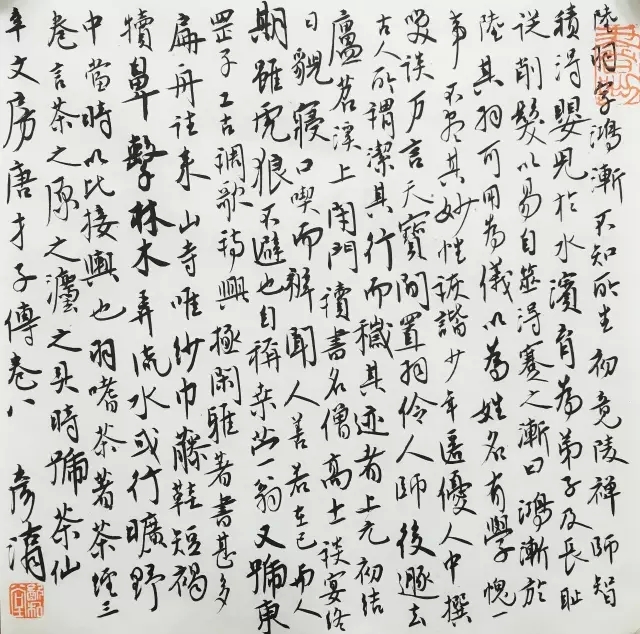 陸羽字鴻漸不知所生初竟陵禪師智
積得嬰兒於水濱育為弟子及長耻
從削髮以易自筮得蹇之漸曰鴻漸於
陸其羽可用為儀以為姓名有學愧一
事不盡其妙性詼諧少年匿優人中撰
咲談万言天寶間置羽伶人師後遯去
古人所謂潔其行而穢其迹者上元初結
廬苕溪上閉門讀書名僧高士談宴終
日貌寢口喫而辯聞人善若在己与人
期雖虎狼不避也自稱桑苧翁又號東
罡子工古調歌詩興極閑雅著書甚多
扁舟往來山寺唯紗巾藤鞋短褐
犢鼻擊林木弄流水或行曠野
中當時以比接輿也羽嗜茶著茶經三
卷言茶之原之灋之具時號茶仙
辛文房唐才子傳卷八